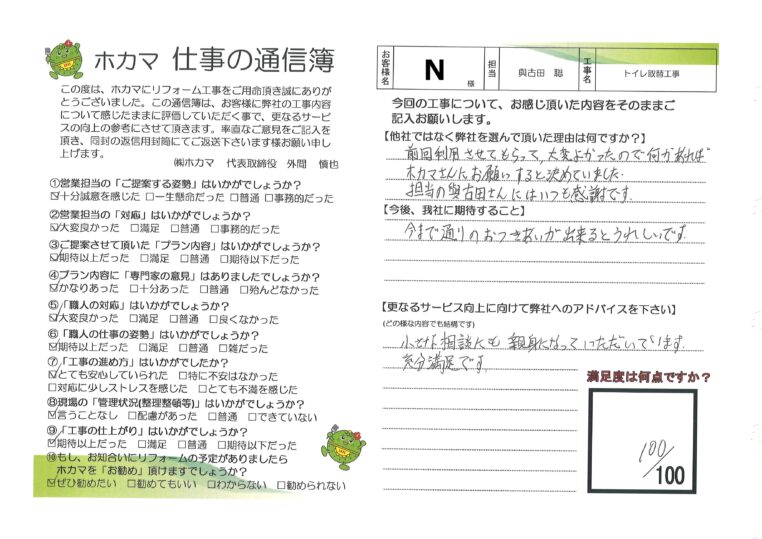 ホカマ 仕事の通信簿
この度は、ホカマにリフォーム工事をご用命頂き誠にありが
とうございました。この通信簿は、お客様に弊社の工事内容
について感じたままに評価していただく事で、更なるサービ
スの向上の参考にさせて頂きます。率直なご意見をご記入を
頂き、同封の返信用封筒にてご返送下さいます様お願い申し
上げます。
㈱ホカマ 代表取締役 外間 慎也
①営業担当の「ご提案する姿勢」はいかがでしょうか?
☑十分誠意を感じた □一生懸命だった □普通 □事務的だった
②営業担当の「対応」はいかがでしょうか?
☑大変良かった □満足 □普通 □事務的だった
③ご提案させて頂いた「プラン内容」はいかがでしょうか?
☑期待以上だった □満足 □普通 □期待以下だった
④プラン内容に「専門家の意見」はありましたでしょうか?
☑かなりあった □十分あった □普通 □殆んどなかった
⑤「職人の対応」はいかがでしょうか?
☑大変良かった □満足 □普通 □良くなかった
⑥「職人の仕事の姿勢」はいかがでしょうか?
☑期待以上だった □満足 □普通 □雑だった
⑦「工事の進め方」はいかがでしたか?
☑とても安心していられた □特に不安はなかった
□対応に少しストレスを感じた □とても不満を感じた
⑧現場の「管理状況(整理整頓等)」はいかがでしょうか?
☑言うことなし □配慮があった □普通 □できていない
⑨「工事の仕上がり」はいかがでしょうか?
☑期待以上だった □満足 □普通 □期待以下だった
⑩もし、お知合いにリフォームの予定がありましたら
ホカマを「お勧め」頂けますでしょうか?
☑ぜひ勧めたい □勧めてもいい □わからない □勧められない
お客様名 N 様 担当 與古田 聡 工事名 トイレ取替工事
今回の工事について、お感じ頂いた内容をそのままご
記入お願いします。
【他社ではなく弊社を選んで頂いた理由は何ですか?】
前回利用させてもらって、大変よかったので何かあれば
ホカマさんにお願いすると決めていました.
担当の與古田さんにはいつも感謝です.
【今後、我社に期待すること】
今まで通りのおつきあいが出来るとうれしいです.
【更なるサービス向上に向けて弊社へのアドバイスを下さい】
(どの様な内容でも結構です)
小さな相談にも 親身になっていただいています.
充分満足です.
満足度は何点ですか?
100/100